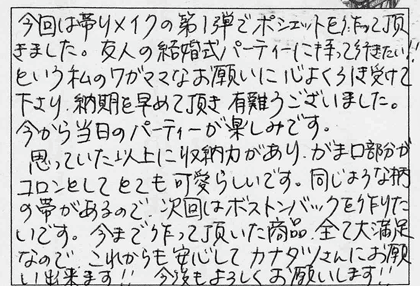 今回は帯リメイクの第1弾でポシェットを作って頂
きました。友人の結婚式パーティーに持って行きたい!!
という私のワガママなお願いに心よくひき受けて
下さり、納期を早めて頂き有難うございました。
今から当日のパーティーが楽しみです。
思っていた以上に収納力があり、がま口部分が
コロンとしてとても可愛らしいです。同じような柄
の帯があるので、次回はボストンバックを作りた
いです。今まで作って頂いた商品、全て大満足
なので、これからも安心してカナタツさんにお願
い出来ます!! 今後もよろしくお願いします!!